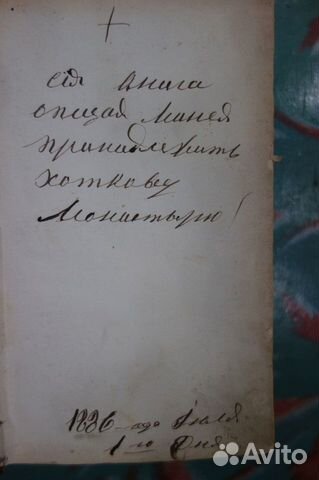 +
сія книга
опщая Минея
принадлежить
хоткову
Монастырю
1886 года Іюля
1 го Дня
Avito